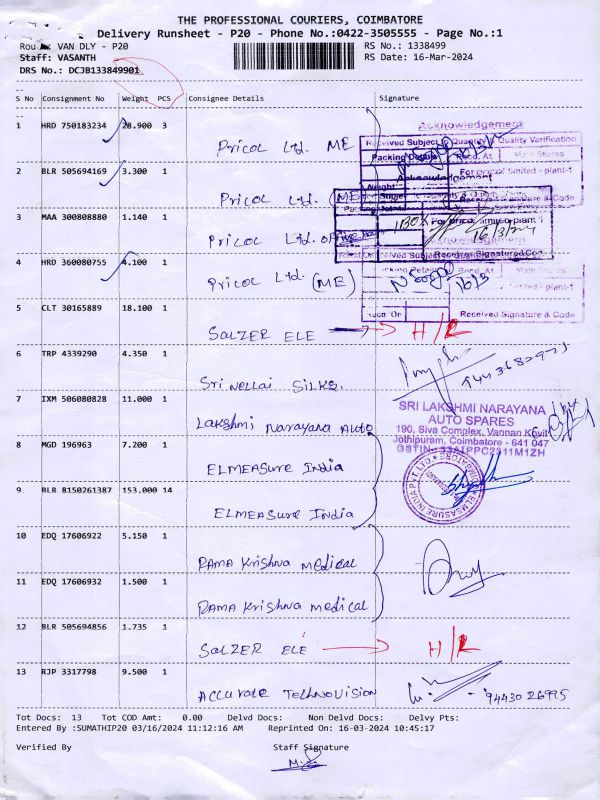 THE PROFESSIONAL COURIERS, COIMBATORE
Delivery Runsheet - P20 - Phone No.:0422-3505555 - Page No.:1
VAN DLY - P20
RS No.: 1338499
Staff: VASANTH
RS Date: 16-Mar-2024
DRS No.: DCJB133849901
S No Consignment No Weight PCS Consignee Details Signature
1 HRD 750183234 28.900 3 Pricol Ltd. ME
2 BLR 505694169 3.300 1 Pricol Ltd. (ME)
3 MAA 300808880 1.140 1 Pricol Ltd.
4 HRD 360080755 4.100 1 Pricol Ltd. (ME)
5 CLT 30165889 18.100 1 SALZER ELE H/R
6 TRP 4339290 4.350 1 Sri Nellai SILKS.
7 IXM 506080828 11.000 1 Lakshmi Narayana Auto
8 MGD 196963 7.200 1 ELMEASure India
9 BLR 8150261387 153.000 14 ELMEASure India
10 EDQ 17606922 5.150 1 RAMA Krishna medical
11 EDQ 17606932 1.500 1 RAMA Krishna medical
12 BLR 505694856 1.735 1 SALZER ELE H/R
13 RJP 3317798 9.500 1 ACCURATE TECHNOVISION
Acknowledgement
Received Subject Quantity Quality Verification
Packing Details Recd. At Main Stores
For pricol limited - plant-1
Acknowledgement
16/3/24
Received Signature & Code
SRI LAKSHMI NARAYANA
AUTO SPARES
190, Siva Complex, Vannan Kovil
Jothipuram, Coimbatore - 641 047
ELMEASURE INDIA PVT LTD
Tot Docs: 13 Tot COD Amt: 0.00 Delvd Docs: Non Delvd Docs: Delvy Pts:
Entered By :SUMATHIP20 03/16/2024 11:12:16 AM Reprinted On: 16-03-2024 10:45:17
Verified By Staff Signature